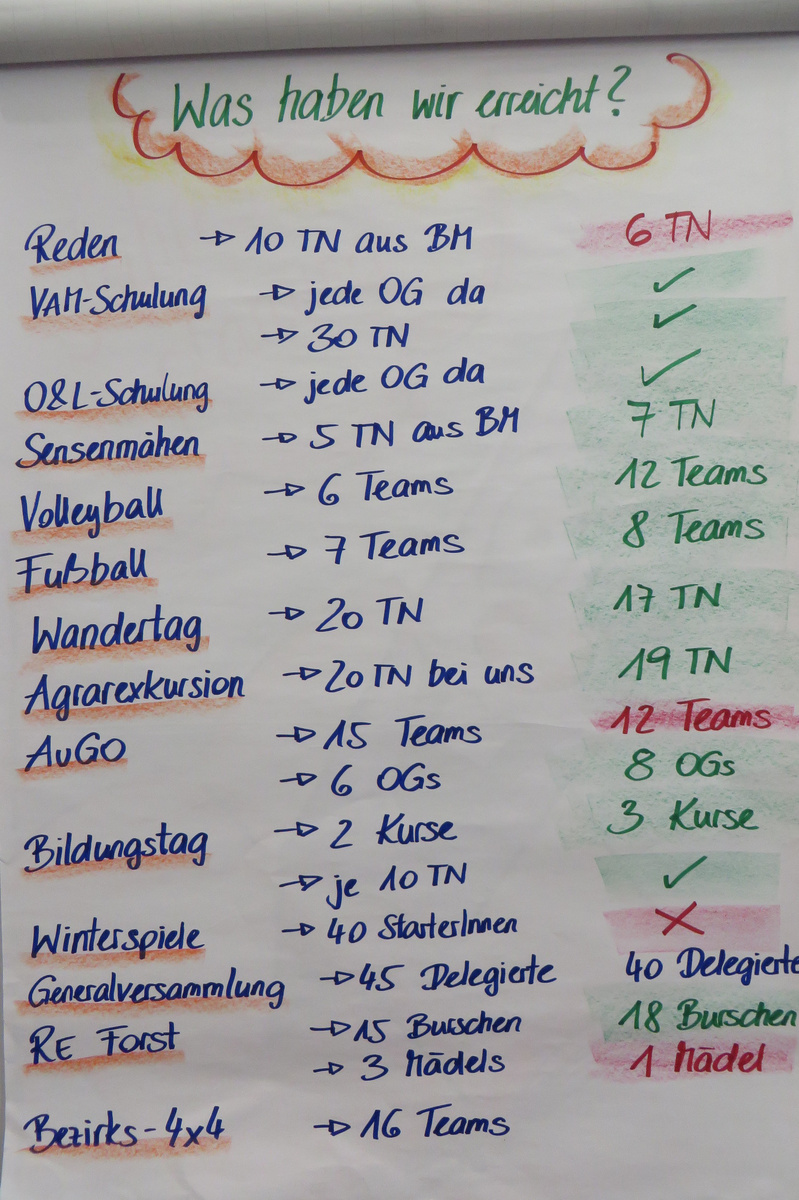 Was haben wir erreicht?
Reden → 10 TN aus BM 6 TN
VAM-Schulung → jede OG da ✓
→ 30 TN ✓
O&L-Schulung → jede OG da ✓
Sensenmähen → 5 TN aus BM 7 TN
Volleyball → 6 Teams 12 Teams
Fußball → 7 Teams 8 Teams
Wandertag → 20 TN 17 TN
Agrarexkursion → 20 TN bei uns 19 TN
AuGO → 15 Teams 12 Teams
→ 6 OGs 8 OGs
Bildungstag → 2 Kurse 3 Kurse
→ je 10 TN ✓
Winterspiele → 40 StarterInnen ✗
Generalversammlung → 45 Delegierte 40 Delegierte
RE Forst → 15 Burschen 18 Burschen
→ 3 Mädels 1 Mädel
Bezirks-4x4 → 16 Teams